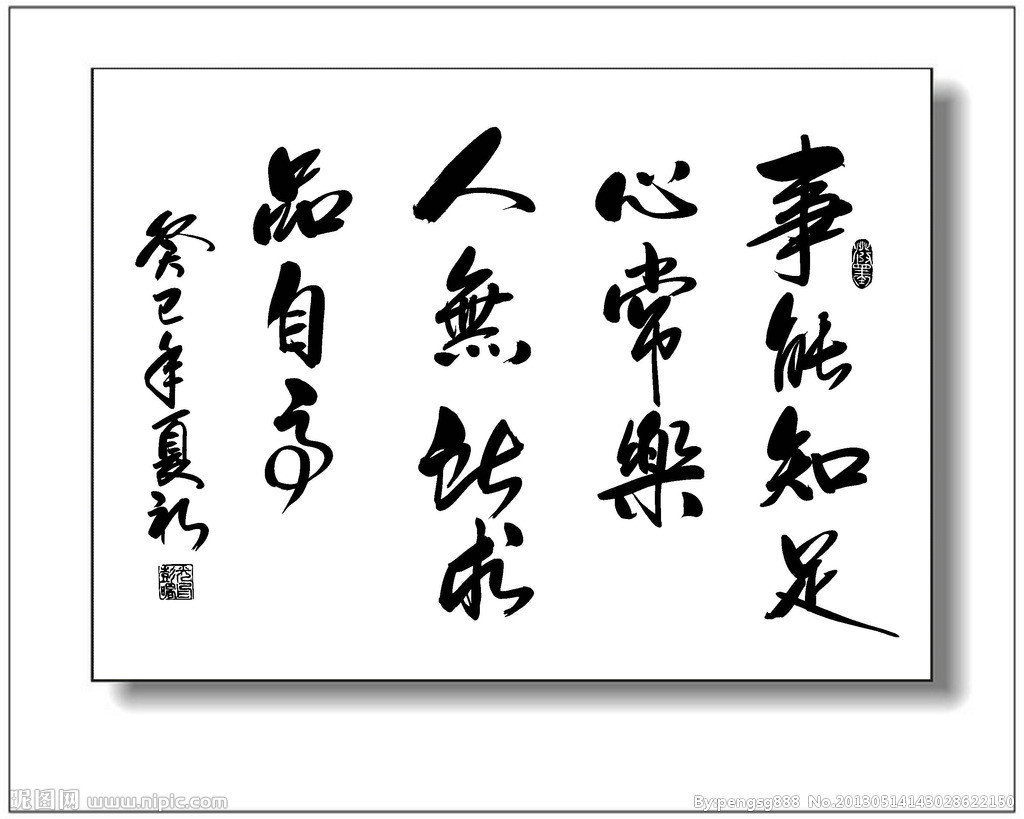 事能知足
心常樂
人無所求
品自高
癸巳年夏初
昵图网 www.nipic.com
By:pengsg888 No.20130514143028622150